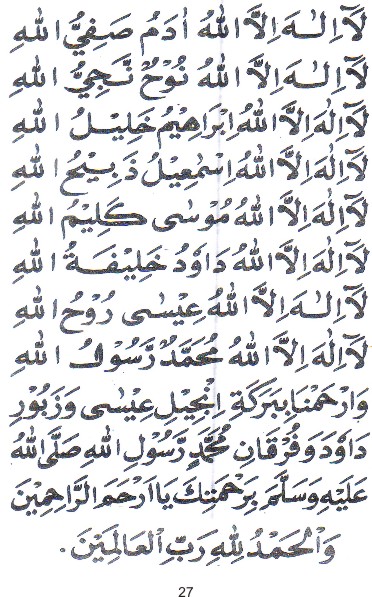 لَآ اِلٰهَ اِلَّا اللهُ اٰدَمُ صَفِيُّ اللهِ
لَآ اِلٰهَ اِلَّا اللهُ نُوْحٌ نَّجِيُّ اللهِ
لَآ اِلٰهَ اِلَّا اللهُ اِبْرَاهِيْمُ خَلِيْلُ اللهِ
لَآ اِلٰهَ اِلَّا اللهُ اِسْمٰعِيْلُ ذَبِيْحُ اللهِ
لَآ اِلٰهَ اِلَّا اللهُ مُوْسٰى كَلِيْمُ اللهِ
لَآ اِلٰهَ اِلَّا اللهُ دَاوٗدُ خَلِيْفَةُ اللهِ
لَآ اِلٰهَ اِلَّا اللهُ عِيْسٰى رُوْحُ اللهِ
لَآ اِلٰهَ اِلَّا اللهُ مُحَمَّدٌ رَّسُوْلُ اللهِ
وَارْحَمْنَا بِبَرَكَةِ اِنْجِيْلِ عِيْسٰى وَزَبُوْرِ
دَاوٗدَ وَفُرْقَانِ مُحَمَّدٍ رَّسُوْلِ اللهِ صَلَّى اللهُ
عَلَيْهِ وَسَلَّمَ بِرَحْمَتِكَ يَا اَرْحَمَ الرَّاحِمِيْنَ
وَالْحَمْدُ لِلّٰهِ رَبِّ الْعَالَمِيْنَ.
27